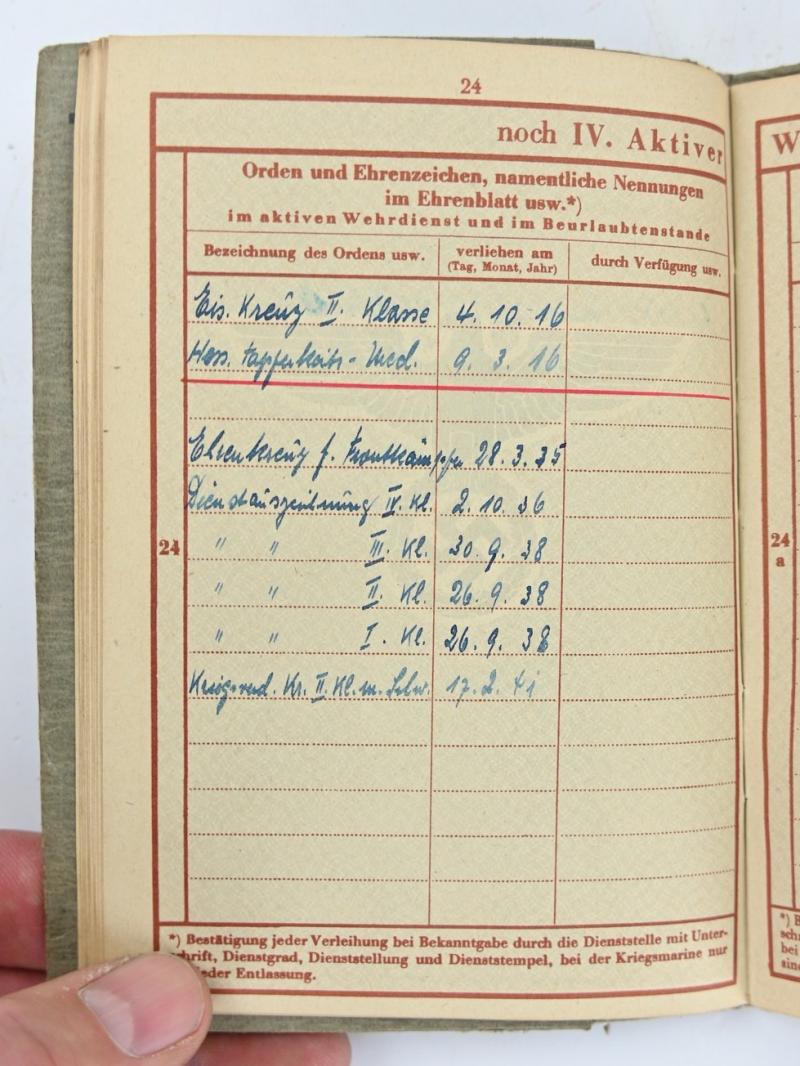 24
noch IV. Aktiver
Orden und Ehrenzeichen, namentliche Nennungen
im Ehrenblatt usw.*)
im aktiven Wehrdienst und im Beurlaubtenstande
Bezeichnung des Ordens usw. verliehen am (Tag, Monat, Jahr) durch Verfügung usw.
Eis. Kreuz II. Klasse 4. 10. 16
Hess. Tapferkeits-Med. 9. 3. 16
Ehrenkreuz f. Frontkämpfer 28. 3. 35
Dienstauszeichnung IV. Kl. 2. 10. 36
24 " " III. Kl. 30. 9. 38
" " II. Kl. 26. 9. 38
" " I. Kl. 26. 9. 38
Kriegsverd. Kr. II. Kl. m. Schw. 17. 2. 41
*) Bestätigung jeder Verleihung bei Bekanntgabe durch die Dienststelle mit Unter-
schrift, Dienstgrad, Dienststellung und Dienststempel, bei der Kriegsmarine nur
jeder Entlassung.
W
24
a
*)
bei